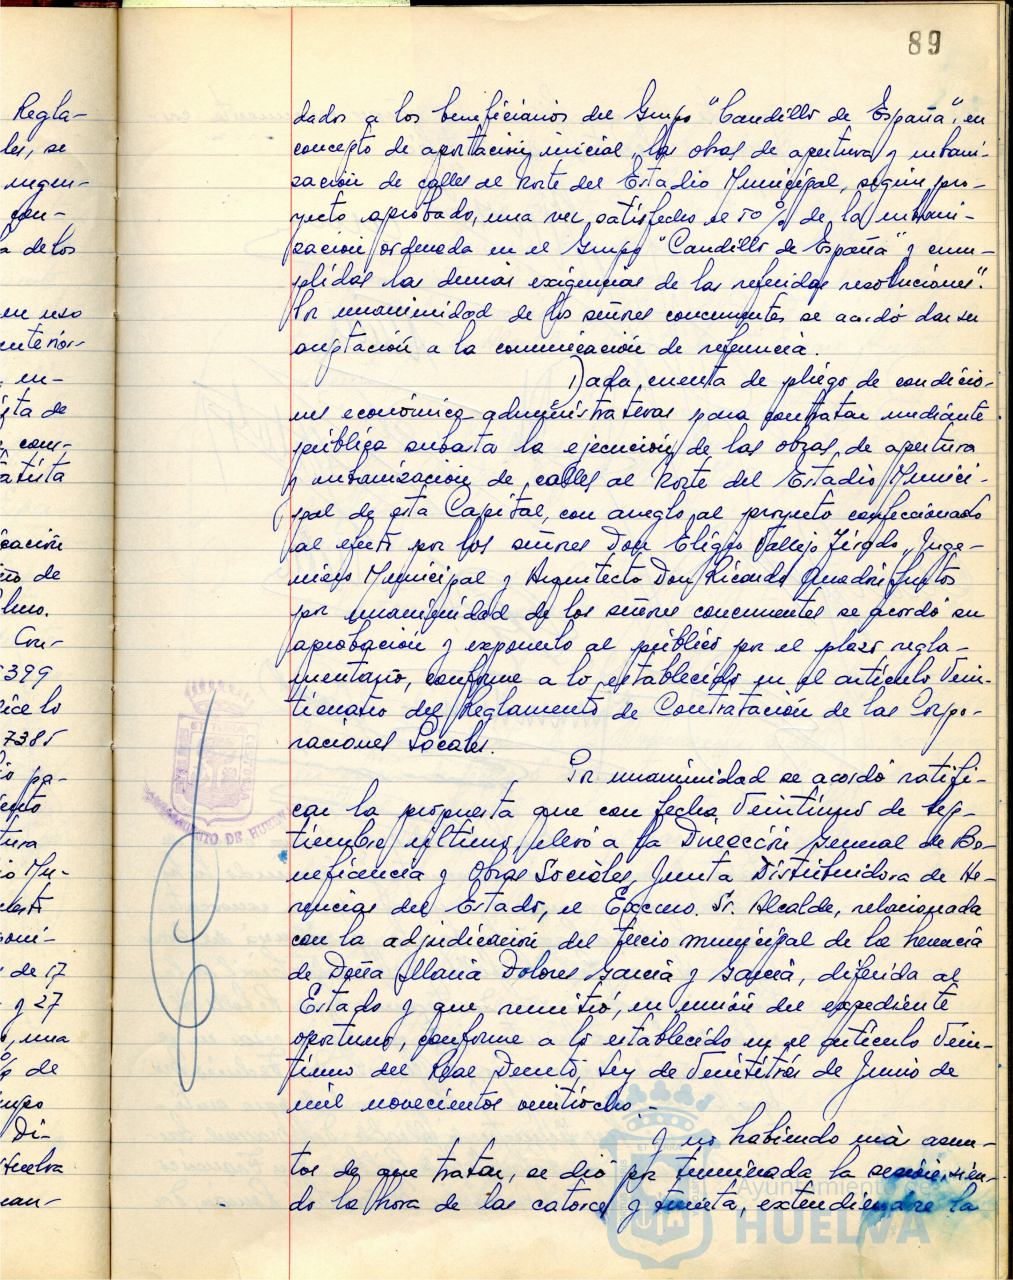 89
Regla-
les, se
a de los
en uso
en-
cación
Cru-
399
7385
de 17
y 27
Di-
Huelva
dados a los beneficiarios del Grupo "Caudillo de España", en
concepto de aportación inicial, las obras de apertura y urbani-
zación de calles al Norte del Estadio Municipal, según pro-
yecto aprobado, una vez satisfecho el 50 % de la urbani-
zación ordenada en el Grupo "Caudillo de España" y cum-
plidas las demás exigencias de las referidas resoluciones".
Por unanimidad de los señores concurrentes se acordó dar su
aceptación a la comunicación de referencia.
Dada cuenta de pliego de condicio-
nes económico-administrativas para contratar mediante
pública subasta la ejecución de las obras de apertura
y urbanización de calles al Norte del Estadio Munici-
pal de esta Capital, con arreglo al proyecto confeccionado
al efecto por los señores Don Eligio Vallejo, Inge-
niero Municipal y Arquitecto Don Ricardo
por unanimidad de los señores concurrentes se acordó su
aprobación y exponerlo al público por el plazo regla-
mentario, conforme a lo establecido en el artículo Vein-
ticuatro del Reglamento de Contratación de las Corpo-
raciones Locales.
Por unanimidad se acordó ratifi-
car la propuesta que con fecha Veintiuno de Sep-
tiembre último, elevó a la Dirección General de Be-
neficencia y Obras Sociales, Junta Distribuidora de He-
rencias del Estado, el Excmo. Sr. Alcalde, relacionada
con la adjudicación del tercio municipal de la herencia
de Doña María Dolores García y García, diferida al
Estado y que remitió, en unión del expediente
oportuno, conforme a lo establecido en el artículo Vein-
tiuno del Real Decreto, Ley de Veintitrés de Junio de
mil novecientos veintiocho.-
Y no habiendo más asun-
tos de que tratar, se dió por terminada la sesión, sien-
do la hora de las catorce y treinta, extendiendose la
AYUNTAMIENTO DE HUELVA
Ayuntamiento de
HUELVA